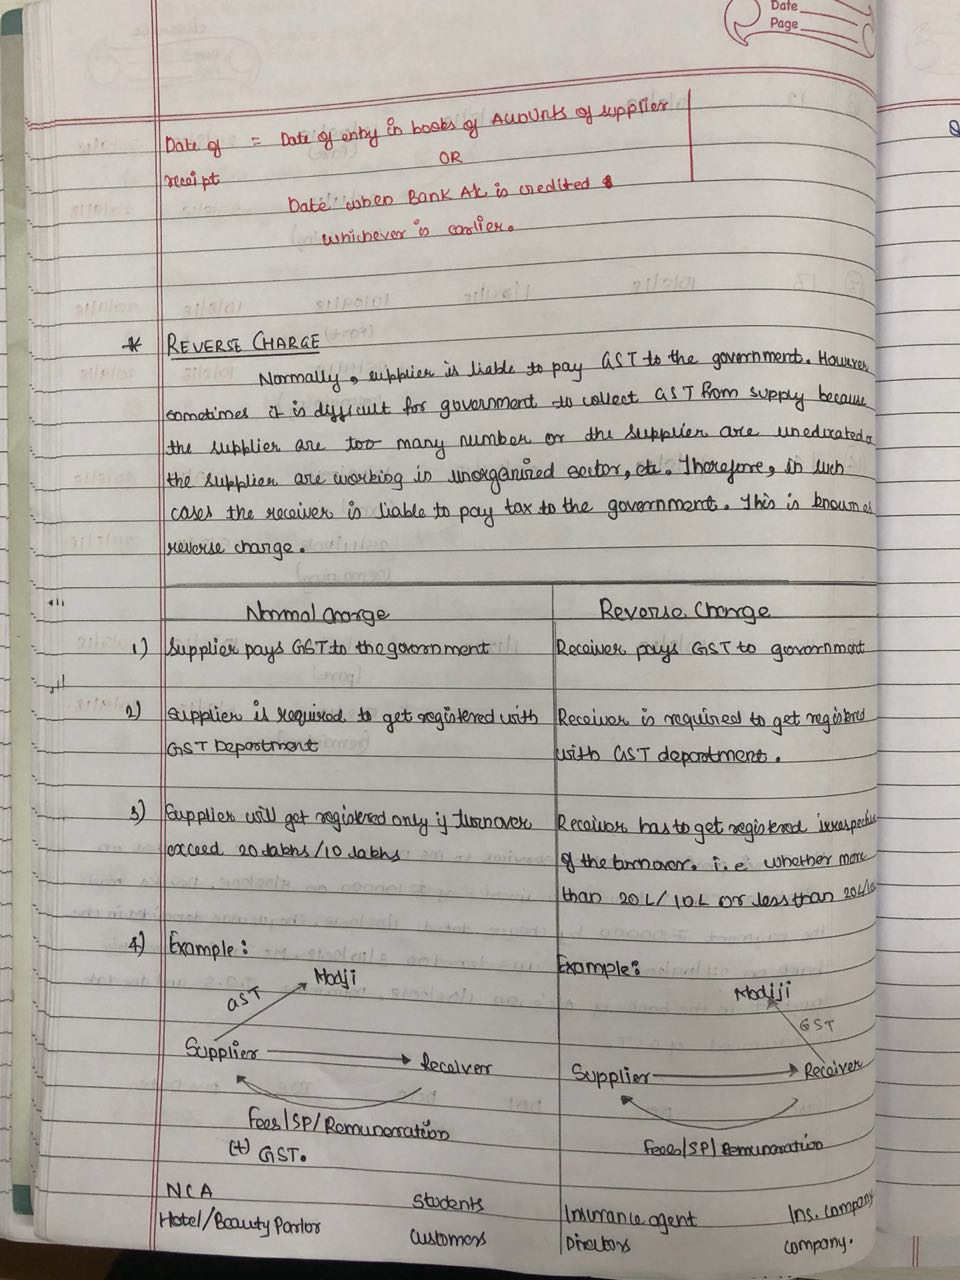 Date
Page
Date of = Date of entry in books of Accounts of supplier
receipt
OR
Date when Bank A/c is credited
whichever is earlier.
* REVERSE CHARGE
Normally, supplier is liable to pay GST to the government. However
sometimes it is difficult for government to collect GST from supply because
the supplier are too many number or the supplier are uneducated
the supplier are working in unorganized sector, etc. Therefore, in such
cases the receiver is liable to pay tax to the government. This is known as
reverse charge.
Normal charge
Reverse Charge
1) Supplier pays GST to the government
Receiver pays GST to government
2) Supplier is required to get registered with
GST Department
Receiver is required to get registered
with GST department.
3) Supplier will get registered only if turnover
exceed 20 lakhs/10 lakhs
Receiver has to get registered irrespective
of the turnover. i.e whether more
than 20 L/10L or less than 20L/10L
4) Example:
GST
Modiji
Supplier
Receiver
Fees/SP/Remuneration
(+) GST.
NCA Students
Hotel/Beauty Parlor Customers
Example:
Modiji
GST
Supplier
Receiver
Fees/SP/Remunaration
Insurance agent Ins. company
Directors company.